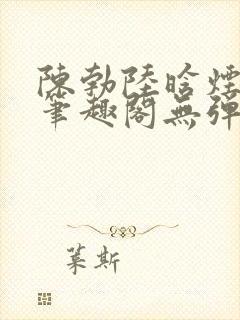 陳勃陸晗煙
筆趣閣無彈
葉斯